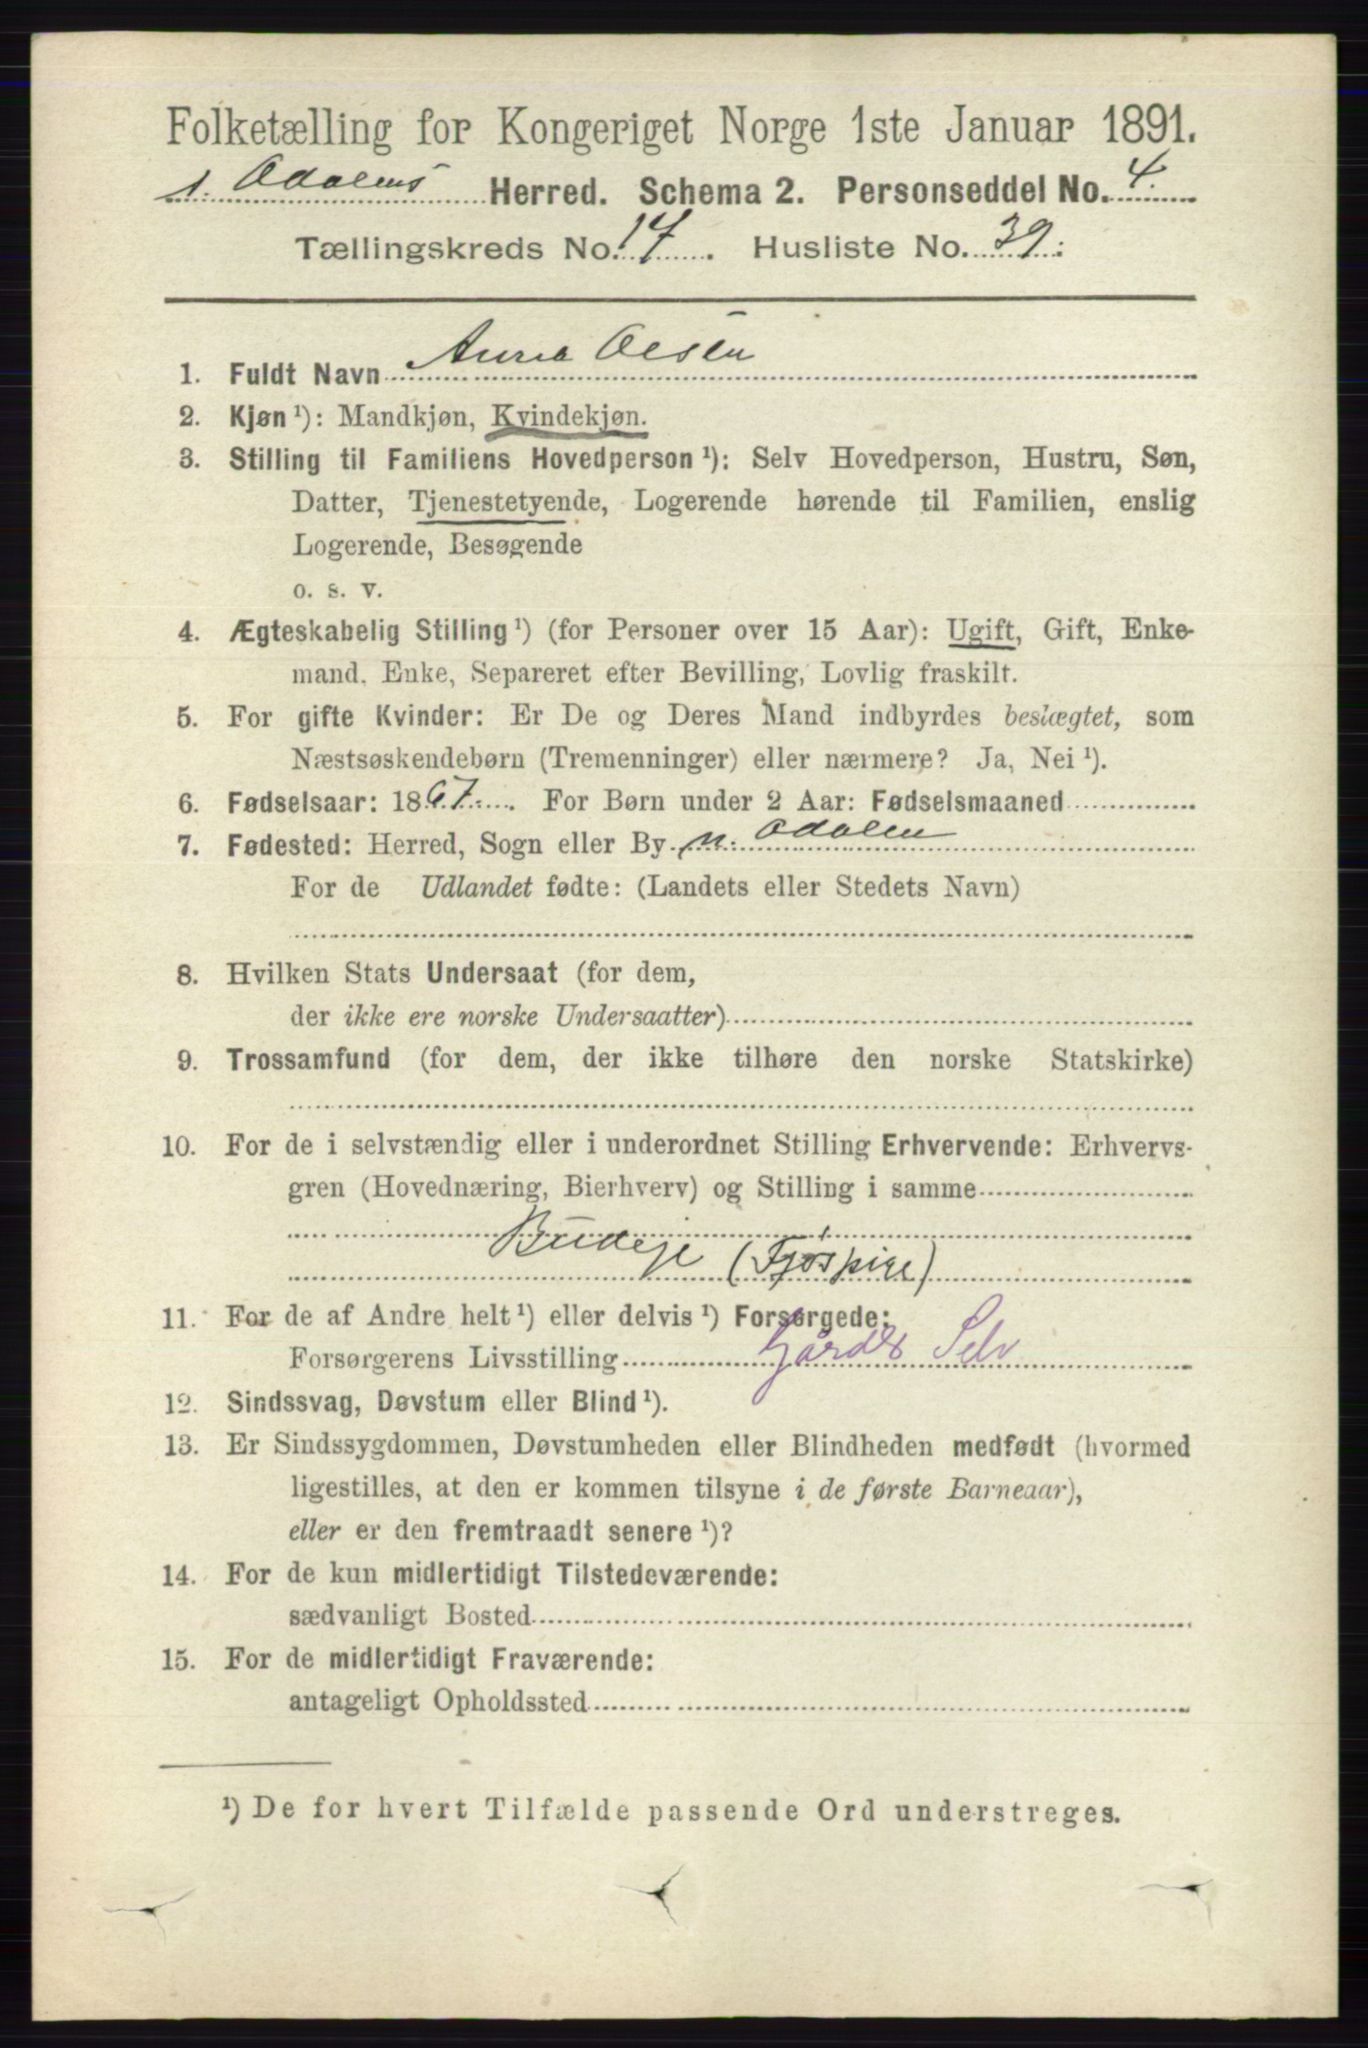 Folketælling for Kongeriget Norge 1ste Januar 1891.
s. Odalens Herred. Schema 2. Personseddel No. 4.
Tællingskreds No. 14. Husliste No. 39.
1. Fuldt Navn Anna Olsen
2. Kjøn ¹): Mandkjøn, Kvindekjøn.
3. Stilling til Familiens Hovedperson ¹): Selv Hovedperson, Hustru, Søn,
Datter, Tjenestetyende, Logerende hørende til Familien, enslig
Logerende, Besøgende
o. s. v.
4. Ægteskabelig Stilling ¹) (for Personer over 15 Aar): Ugift, Gift, Enke-
mand, Enke, Separeret efter Bevilling, Lovlig fraskilt.
5. For gifte Kvinder: Er De og Deres Mand indbyrdes beslægtet, som
Næstsøskendebørn (Tremenninger) eller nærmere? Ja, Nei ¹).
6. Fødselsaar: 1867. For Børn under 2 Aar: Fødselsmaaned
7. Fødested: Herred, Sogn eller By n. Odalen
For de Udlandet fødte: (Landets eller Stedets Navn)
8. Hvilken Stats Undersaat (for dem,
der ikke ere norske Undersaatter)
9. Trossamfund (for dem, der ikke tilhøre den norske Statskirke)
10. For de i selvstændig eller i underordnet Stilling Erhvervende: Erhvervs-
gren (Hovednæring, Bierhverv) og Stilling i samme
Budeje (Fjøspige)
11. For de af Andre helt ¹) eller delvis ¹) Forsørgede:
Forsørgerens Livsstilling Gårdb Selv
12. Sindssvag, Døvstum eller Blind ¹).
13. Er Sindssygdommen, Døvstumheden eller Blindheden medfødt (hvormed
ligestilles, at den er kommen tilsyne i de første Barneaar),
eller er den fremtraadt senere ¹)?
14. For de kun midlertidigt Tilstedeværende:
sædvanligt Bosted
15. For de midlertidigt Fraværende:
antageligt Opholdssted
¹) De for hvert Tilfælde passende Ord understreges.